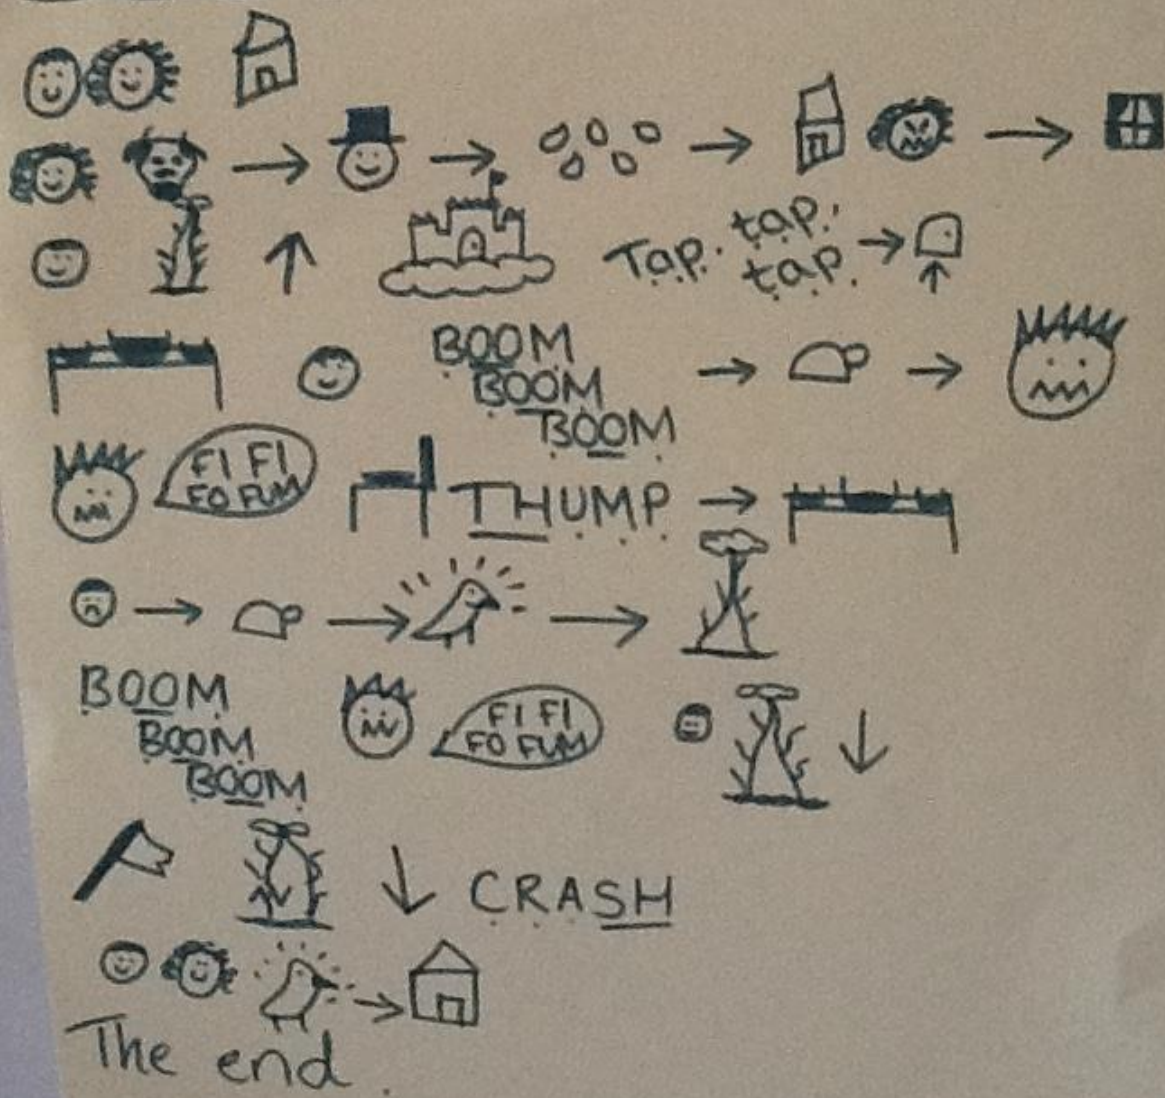 Tap. tap.
tap.
BOOM
BOOM
BOOM
FI FI
FO FUM
THUMP
BOOM
BOOM
BOOM
FI FI
FO FUM
CRASH
The end.